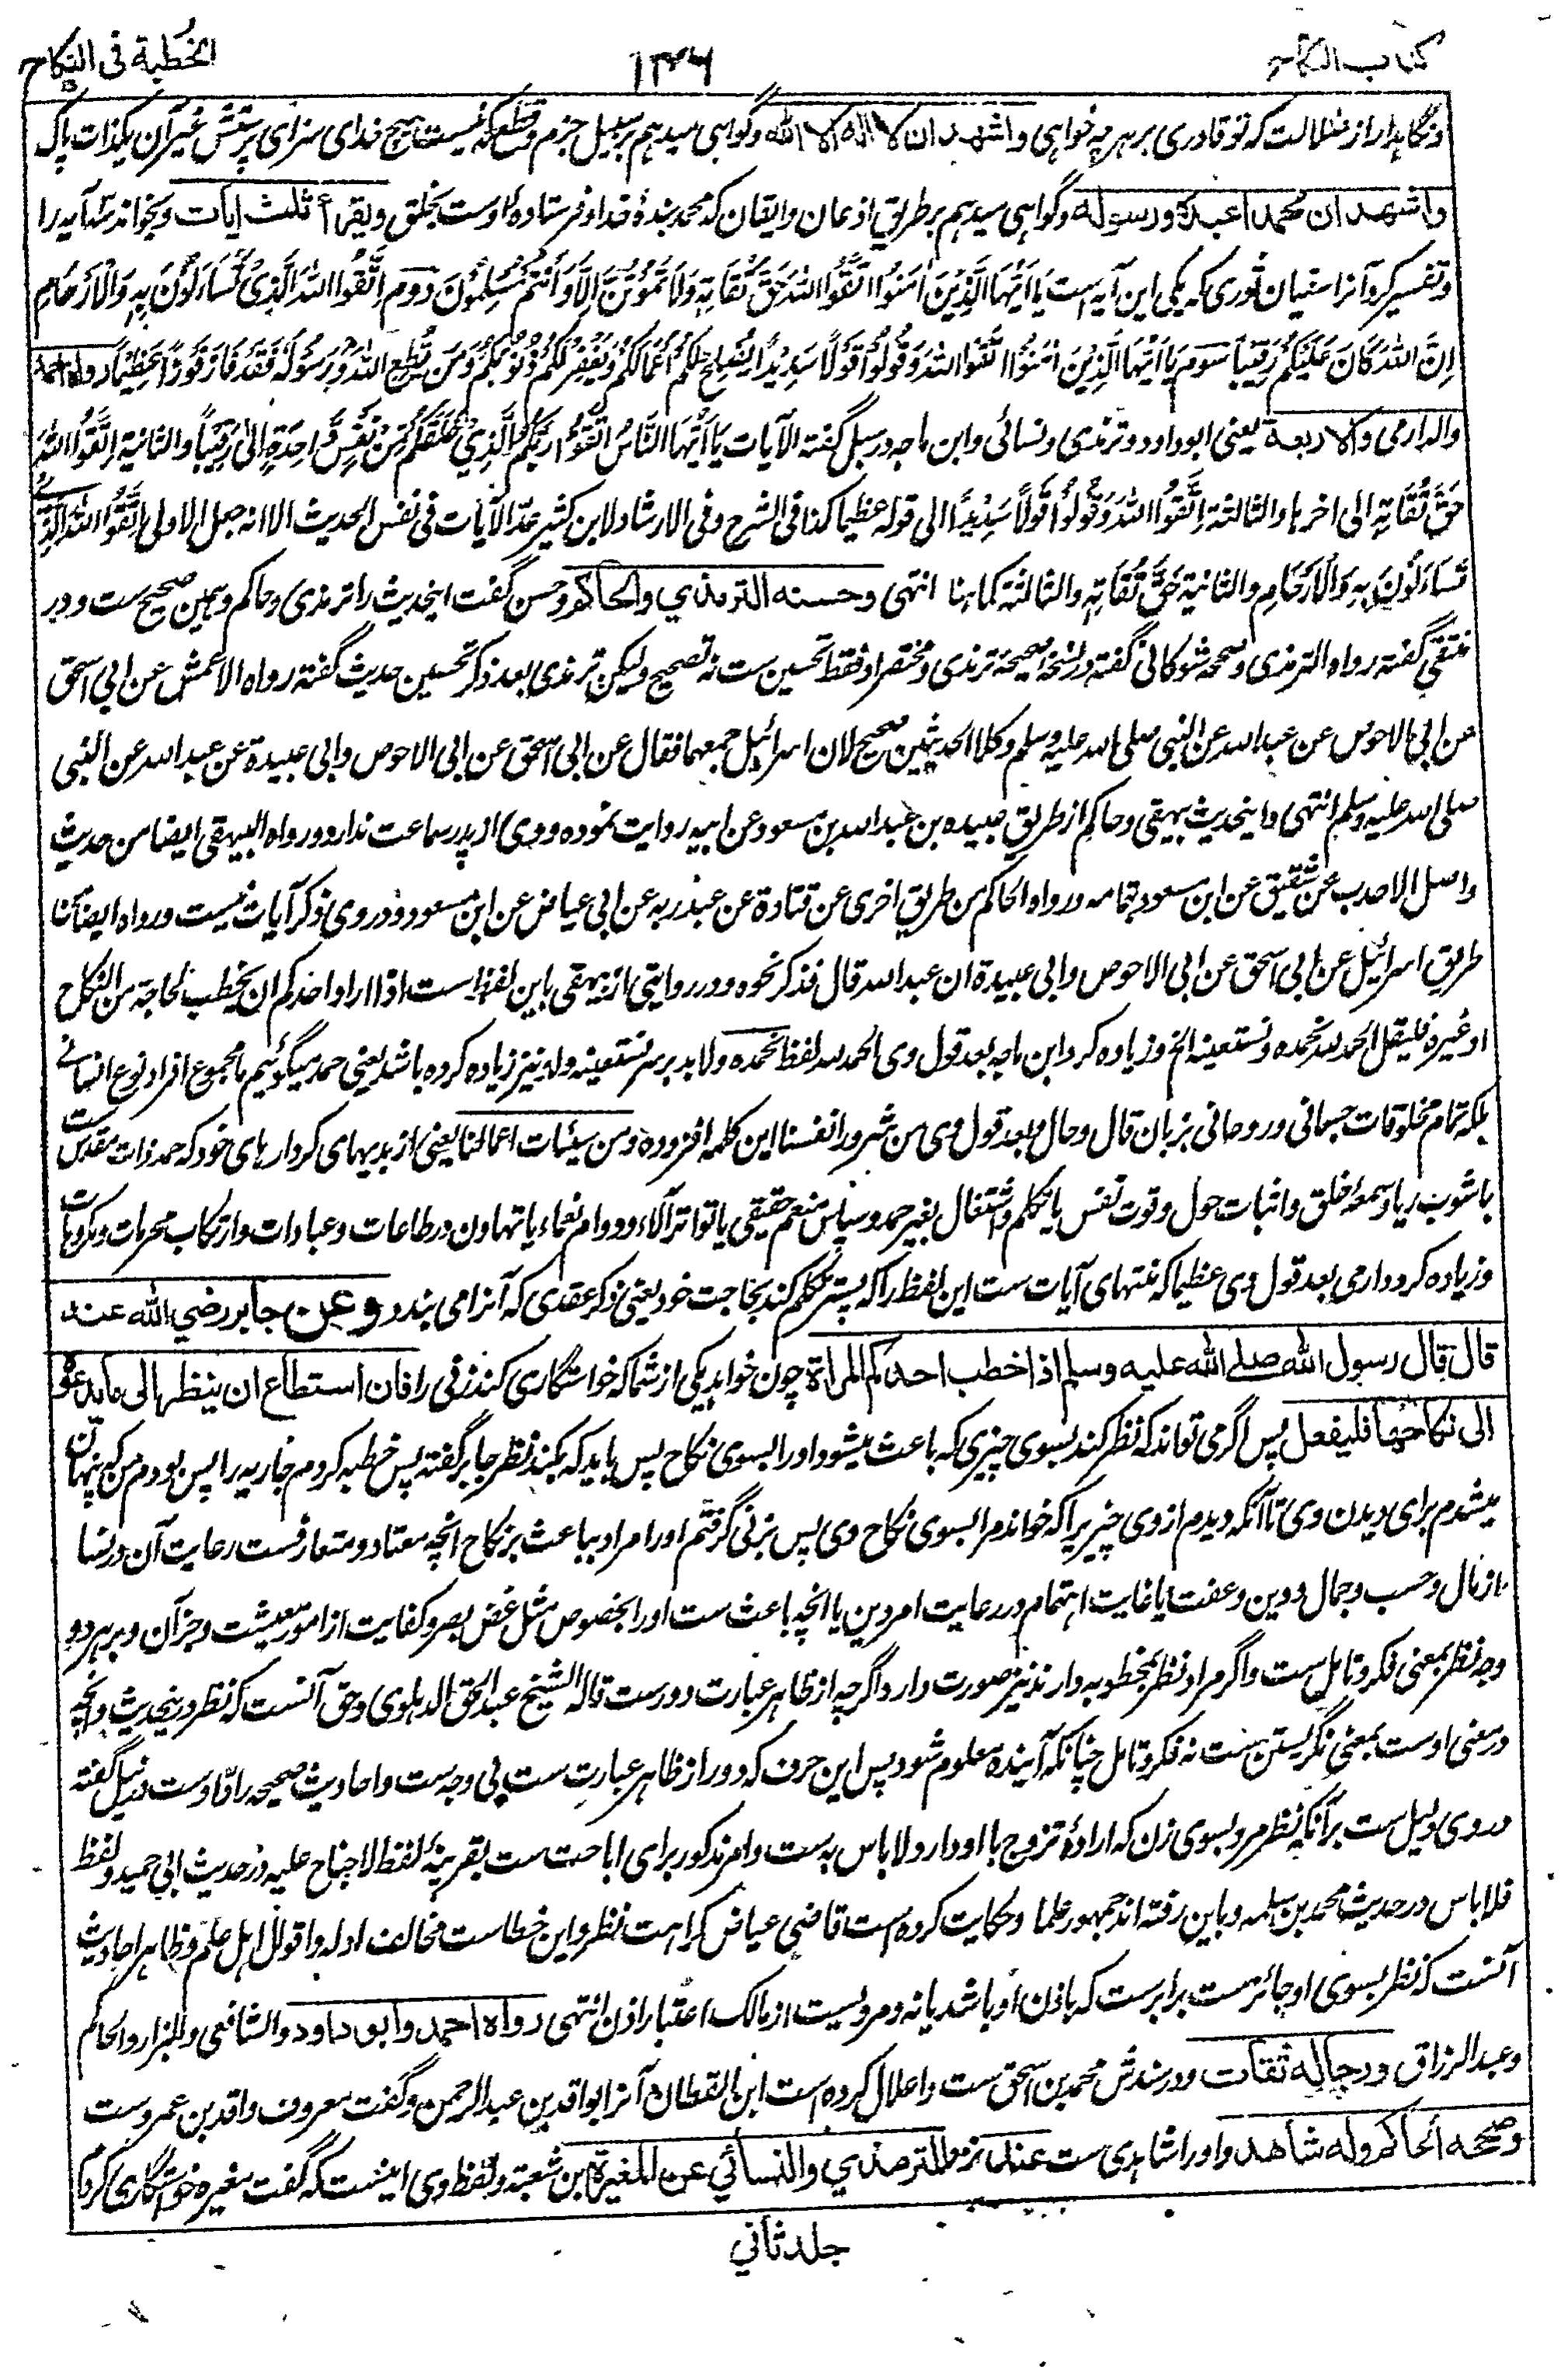 كتاب النكاح
١٣٦
الخطبة فى النكاح
ونگاهدار از ضلالت كه تو قادرى بر هر چه خواهى واشهد ان لا اله الا الله وگواهى ميدهم بر سبيل جزم وقطع كه نيست هيچ خداى سزاى پرستش غير آن يكذات پاك
واشهد ان محمدا عبده ورسوله وگواهى ميدهم بر طريق اذعان وايقان كه محمد بندۀ خدا وفرستادۀ اوست بخلق ويقرأ ثلث ايات وبخواند سه آيه را
وتفسير كرد آنرا سفيان ثورى كه يكى اين آيه است يَا أَيُّهَا الَّذِيْنَ اٰمَنُوا اتَّقُوا اللهَ حَقَّ تُقَاتِهٖ وَلَا تَمُوْتُنَّ اِلَّا وَاَنْتُمْ مُسْلِمُوْنَ دوم اِتَّقُوا اللهَ الَّذِىْ تَسَاءَلُوْنَ بِهٖ وَالْاَرْحَامِ
اِنَّ اللهَ كَانَ عَلَيْكُمْ رَقِيْبًا سوم يَا اَيُّهَا الَّذِيْنَ اٰمَنُوا اتَّقُوا اللهَ وَقُوْلُوْا قَوْلًا سَدِيْدًا يُصْلِحْ لَكُمْ اَعْمَالَكُمْ وَيَغْفِرْ لَكُمْ ذُنُوْبَكُمْ وَمَنْ يُطِعِ اللهَ وَرَسُوْلَهٗ فَقَدْ فَازَ فَوْزًا عَظِيْمًا رواه احمد
والدارمى والاربعة يعنى ابو داود وترمذى ونسائى وابن ماجه در سبل گفته الآيات يَا اَيُّهَا النَّاسُ اتَّقُوْا رَبَّكُمُ الَّذِىْ خَلَقَكُمْ مِنْ نَفْسٍ وَّاحِدَةٍ اِلٰى رَقِيْبًا والثانية اِتَّقُوا اللهَ
حَقَّ تُقَاتِهٖ الى اخرها والثالثة اِتَّقُوا اللهَ وَقُوْلُوْا قَوْلًا سَدِيْدًا الى قوله عظيما كذا فى الشرح وفى الارشاد لابن كثير عدّ الآيات فى نفس الحديث الا انه جعل الاولى اِتَّقُوا اللهَ الَّذِىْ
تَسَاءَلُوْنَ بِهٖ وَالْاَرْحَامِ والثانية حَقَّ تُقَاتِهٖ والثالثة كما هنا انتهى وحسنه الترمذي والحاكم وحسن گفت اينحديث را ترمذى وحاكم وهمين صحيح ست ودر
منتقى گفته رواه الترمذى وصححه شوكانى گفته در نسخۀ صحيحه ترمذى ومختصر او فقط تحسين ست نه تصحيح وليكن ترمذى بعد ذكر تحسين حديث گفته رواه الاعمش عن ابى اسحق
عن ابى الاحوص عن عبد الله عن النبى صلى الله عليه وسلم وكلا الحديثين صحيح لان اسرائيل جمعهما فقال عن ابى اسحق عن ابى الاحوص وابى عبيدة عن عبد الله عن النبى
صلى الله عليه وسلم انتهى واينحديث بيهقى وحاكم از طريق عبيده بن عبد الله بن مسعود عن ابيه روايت نموده ووى از پدر سماعت ندارد ورواه البيهقى ايضا من حديث
واصل الاحدب عن شقيق عن ابن مسعود بتمامه ورواه الحاكم من طريق اخرى عن قتادة عن عبد ربه عن ابى عياض عن ابن مسعود ودر وى ذكر آيات نيست ورواه ايضا من
طريق اسرائيل عن ابى اسحق عن ابى الاحوص وابى عبيدة ان عبد الله قال فذكر نحوه ودر روايتى از بيهقى باين لفظ ست اذا اراد احدكم ان يخطب لحاجة من النكاح
او غيره فليقل الحمد لله نحمده ونستعينه الخ وزياده كرد ابن ماجه بعد قول وى الحمد لله لفظ نحمده ولابد بر سر نستعينه واو نيز زياده كرده باشد يعنى حمد ميگوئيم ما مجموع افراد نوع انسانى
بلكه تمام مخلوقات جسمانى وروحانى بزبان قال وحال وبعد قول وى من شرور انفسنا اين كلمه افزوده ومن سيئات اعمالنا يعنى از بديهاى كردارهاى خود كه حمد ذات مقدس ست
با شوب ريا وسمعۀ خلق واثبات حول وقوت نفس يا تكلم واشتغال بغير حمد وسپاس منعم حقيقى يا تواتر آلاء ودوام نعماء يا تهاون در طاعات وعبادات وارتكاب محرمات ومكروهات
وزياده كرد دارمى بعد قول وى عظيما كه منتهاى آيات ست اين لفظ را كه پستر تكلم كند بحاجت خود يعنى ذكر عقدى كه آنرا مى بندد وعن جابر رضي الله عنه
قال قال رسول الله صلے الله عليه وسلم اذا خطب احدكم المراة چون خواهد يكى از شما كه خواستگارى كند زنى را فان استطاع ان ينظر الى ما يدعوه
الى نكاحها فليفعل پس اگر مى تواند كه نظر كند بسوى چيزى كه باعث ميشود او را بسوى نكاح پس بايد كه بكند نظر جابر گفته پس خطبه كردم جاريه را پس بودم من كه پنهان
ميشدم براى ديدن وى تا آنكه ديدم از وى چيزيرا كه خواند مرا بسوى نكاح وى پس بزنى گرفتم او را مراد بباعث بر نكاح انچه معتاد ومتعارفست رعايت آن در نسا
از مال وحسب وجمال ودين وعفت يا غايت اهتمام در رعايت امر دين يا انچه باعث ست او را بخصوص مثل غض بصر وكفايت از امور معيشت وجز آن وبر هر دو
وجه نظر بمعنى فكر وتامل ست واگر مراد نظر بمخطوبه دارند نيز صورت دارد اگرچه از ظاهر عبارت دورست قاله الشيخ عبد الحق الدهلوى وحق آنست كه نظر درينحديث وانچه
در معنى اوست بمعنى نگريستن ست نه فكر وتامل چنانكه آينده معلوم شود پس اين حرف كه دور از ظاهر عبارت ست بى وجه ست واحاديث صحيحه رادّ اوست در نيل گفته
در وى دليل ست بر آنكه نظر مرد بسوى زن كه ارادۀ تزوج با او دارد لا باس به ست وامر مذكور براى اباحت ست بقرينۀ لفظ لا جناح عليه در حديث ابى حميد ولفظ
فلا باس در حديث محمد بن سلمه وباين رفته اند جمهور علما وحكايت كرده ست قاضى عياض كراهت نظر واين خطاست مخالف ادله واقوال اهل علم وظاهر احاديث
آنست كه نظر بسوى او جائز ست برابرست كه باذن او باشد يا نه ومرويست از مالك اعتبار اذن انتهى رواه احمد وابو داود والشافعى والبزار والحاكم
وعبد الرزاق ورجاله ثقات ودر سندش محمد بن اسحق ست واعلال كرده ست ابن القطان آنرا بواقد بن عبد الرحمن وگفت معروف واقد بن عمروست
وصححه الحاكم وله شاهد واو را شاهدى ست عند نزد الترمذي والنسائي عن المغيرة ابن شعبة ولفظ وى اينست كه گفت مغيره خواستگارى كردم
جلد ثاني